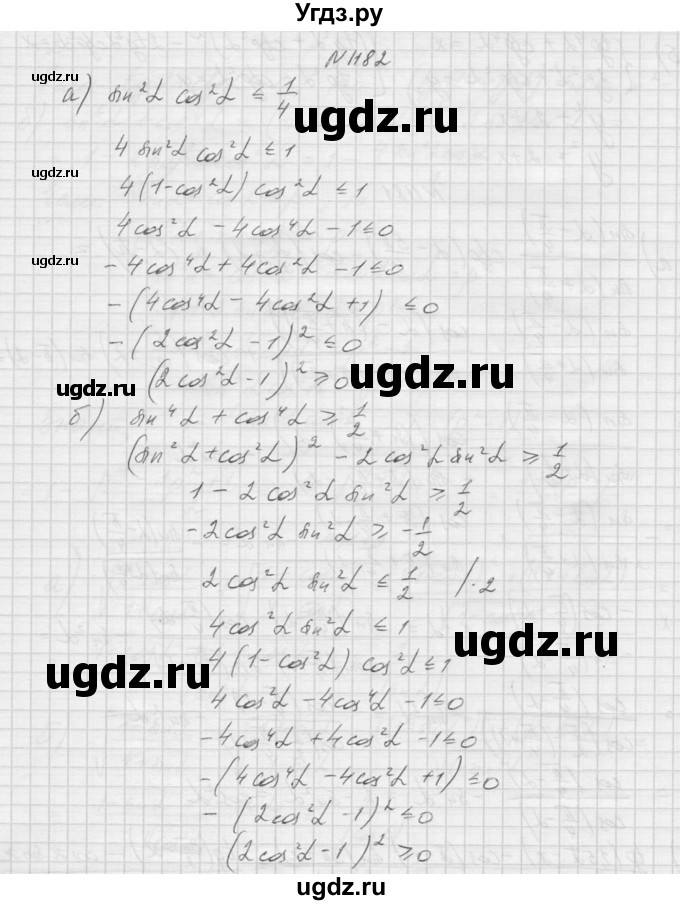 Угдз.ру
N1182
ugdz.ru
а) sin²α cos²α ≤ 1/4
4 sin²α cos²α ≤ 1
ugdz.ru
4(1-cos²α) cos²α ≤ 1
4cos²α - 4cos⁴α - 1 ≤ 0
ugdz.ru
-4cos⁴α + 4cos²α - 1 ≤ 0
-(4cos⁴α - 4cos²α + 1) ≤ 0
-(2cos²α - 1)² ≤ 0
ugdz.ru
(2cos²α - 1)² ≥ 0
ugdz.ru
б) sin⁴α + cos⁴α ≥ 1/2
(sin²α + cos²α)² - 2cos²α sin²α ≥ 1/2
1 - 2cos²α sin²α ≥ 1/2
-2cos²α sin²α ≥ -1/2
2cos²α sin²α ≤ 1/2 /·2
4cos²α sin²α ≤ 1
ugdz.ru
4(1-cos²α) cos²α ≤ 1
ugdz.ru
4cos²α - 4cos⁴α - 1 ≤ 0
-4cos⁴α + 4cos²α - 1 ≤ 0
-(4cos⁴α - 4cos²α + 1) ≤ 0
-(2cos²α - 1)² ≤ 0
(2cos²α - 1)² ≥ 0
ugdz.ru